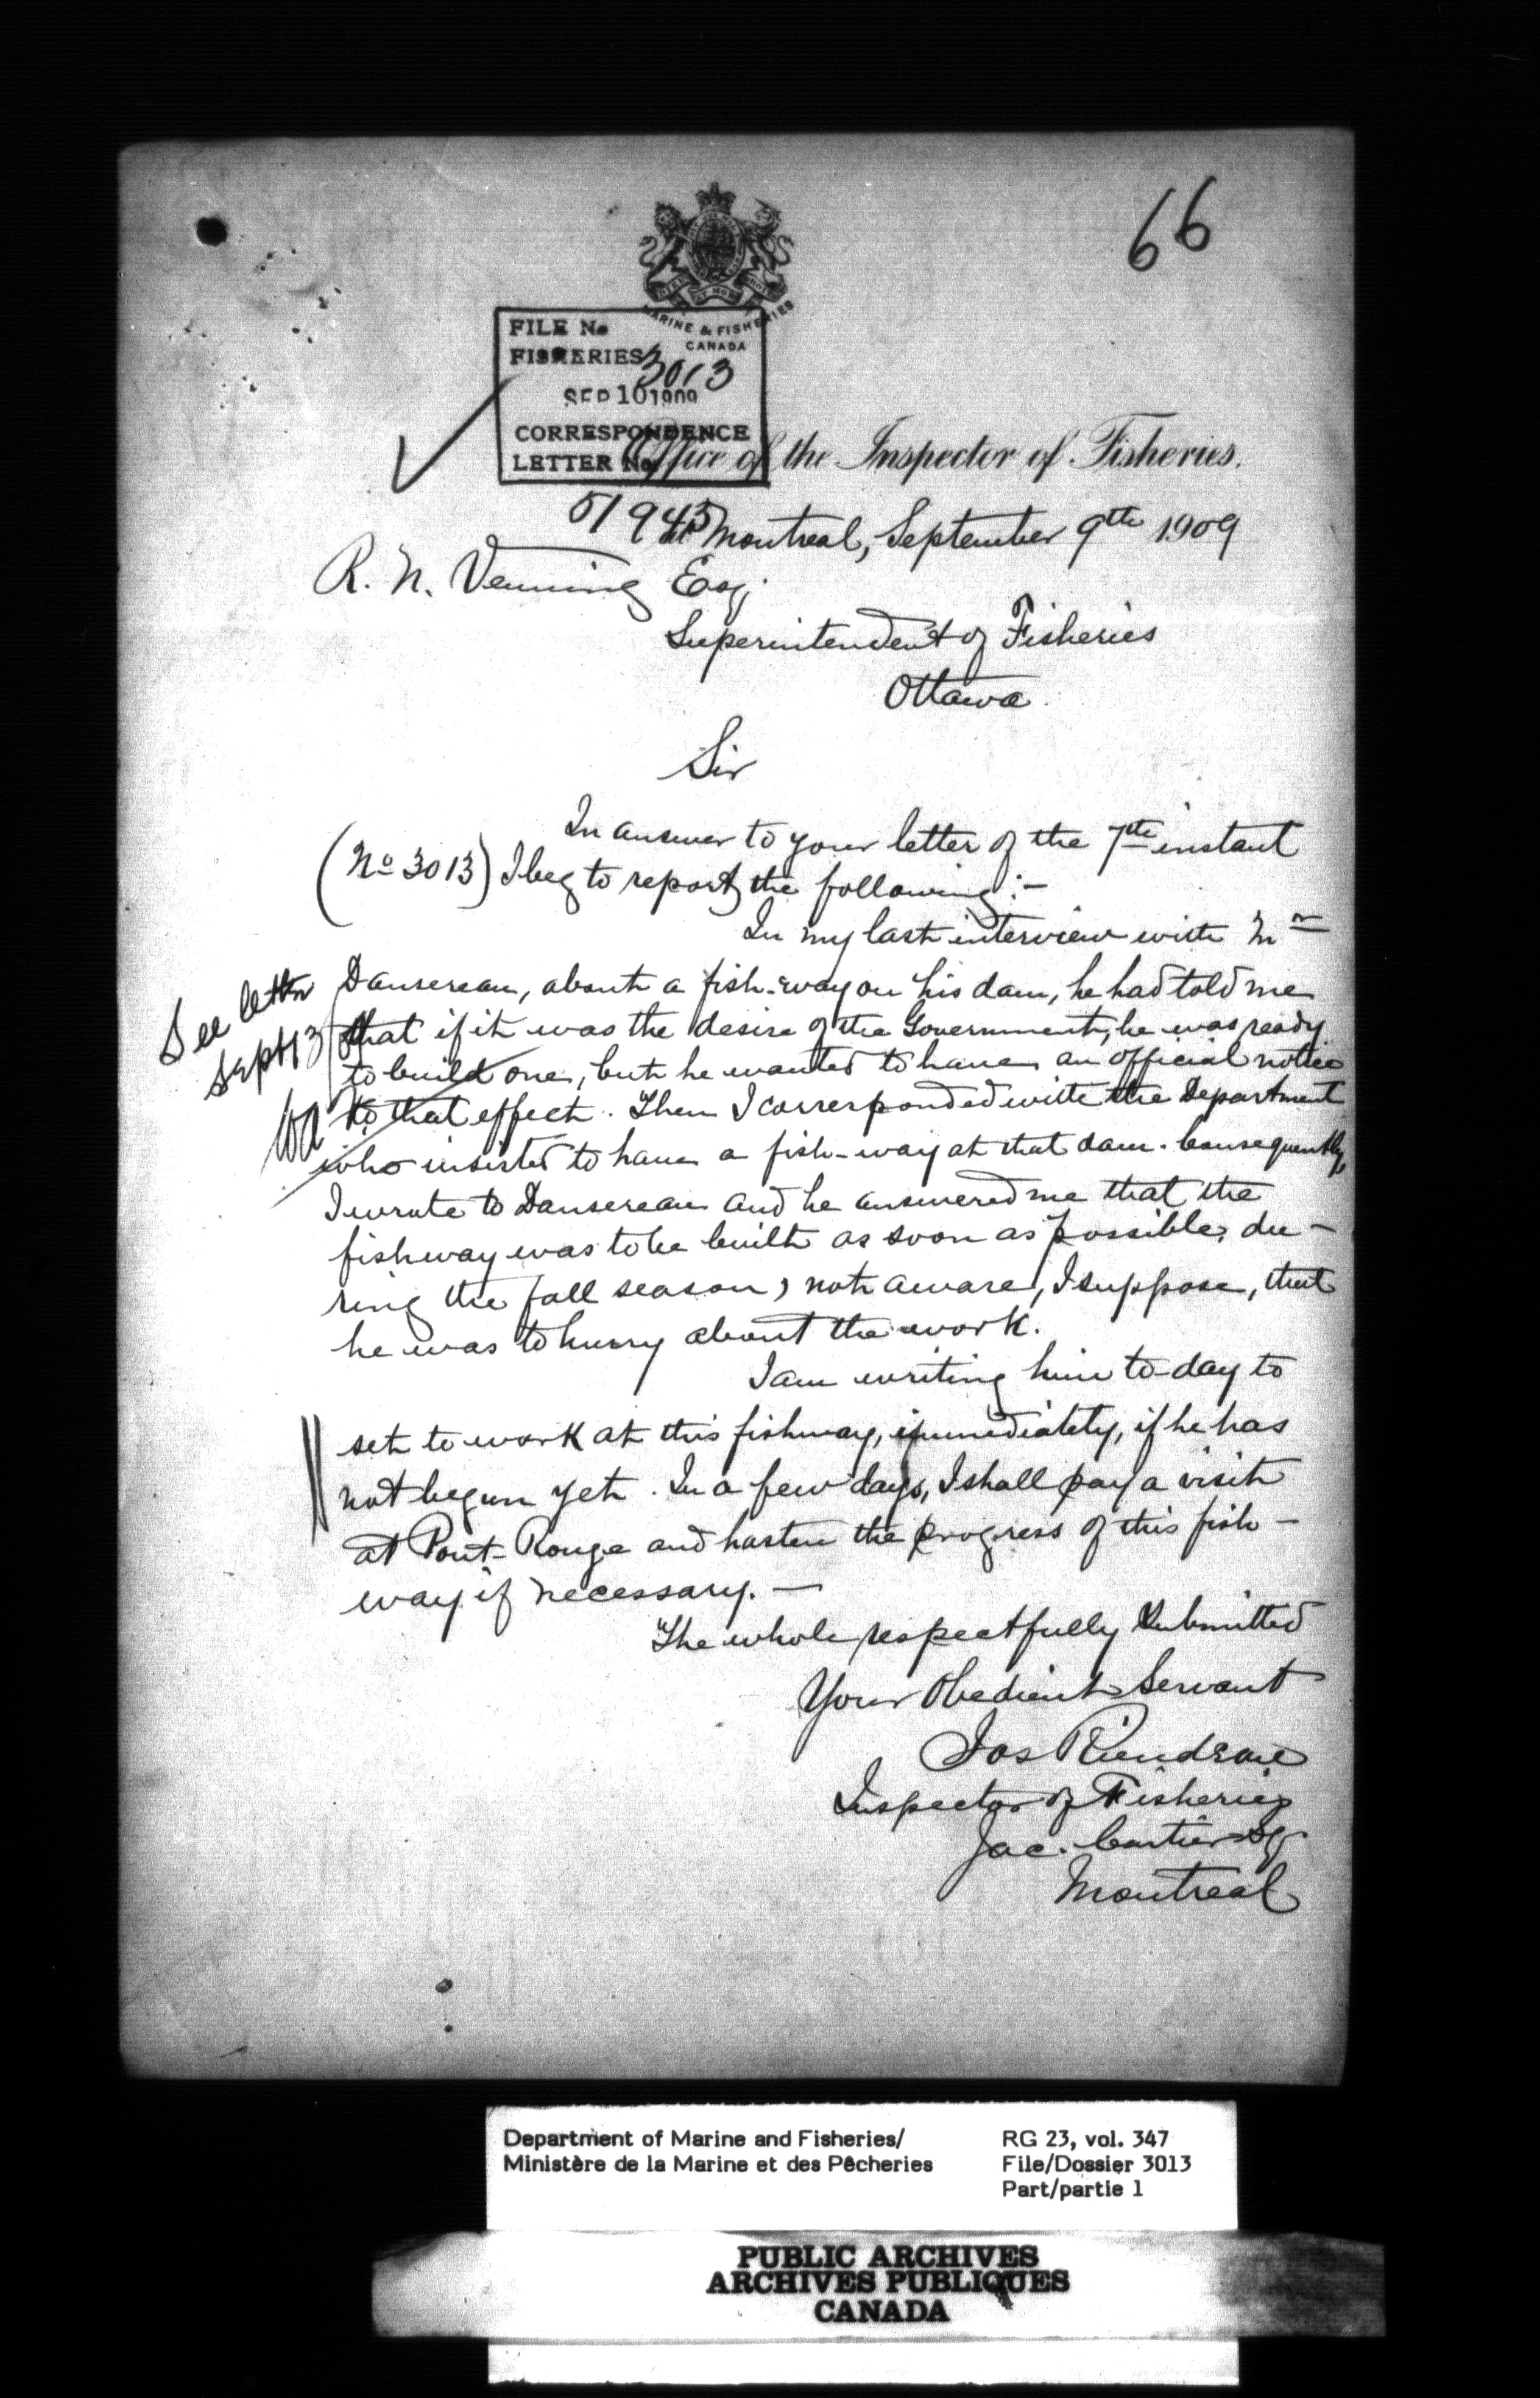 66
MARINE & FISHERIES
CANADA
FILE No
FISHERIES 3013
SEP 10 1909
CORRESPONDENCE
LETTER No
Office of the Inspector of Fisheries.
51945
Montreal, September 9th 1909
R. N. Venning Esq.
Superintendent of Fisheries
Ottawa
Sir
In answer to your letter of the 7th instant
(No 3013) I beg to report the following :-
In my last interview with Mr
See letter
Sept 13
Dansereau, about a fish-way on his dam, he had told me
that if it was the desire of the Government, he was ready
to build one, but he wanted to have an official notice
to that effect. Then I corresponded with the Department
who insisted to have a fish-way at that dam. Consequently,
I wrote to Dansereau and he answered me that the
fishway was to be built as soon as possible, du-
ring the fall season, not aware, I suppose, that
he was to hurry about the work.
I am writing him to-day to
set to work at this fishway, immediately, if he has
not begun yet. In a few days, I shall pay a visit
at Pont-Rouge and hasten the progress of this fish-
way if necessary. -
The whole respectfully submitted
Your Obedient Servant
Jos Riendeau
Inspector of Fisheries
Jac. Cartier Sq
Montreal
Department of Marine and Fisheries/
Ministère de la Marine et des Pêcheries
RG 23, vol. 347
File/Dossier 3013
Part/partie 1
PUBLIC ARCHIVES
ARCHIVES PUBLIQUES
CANADA